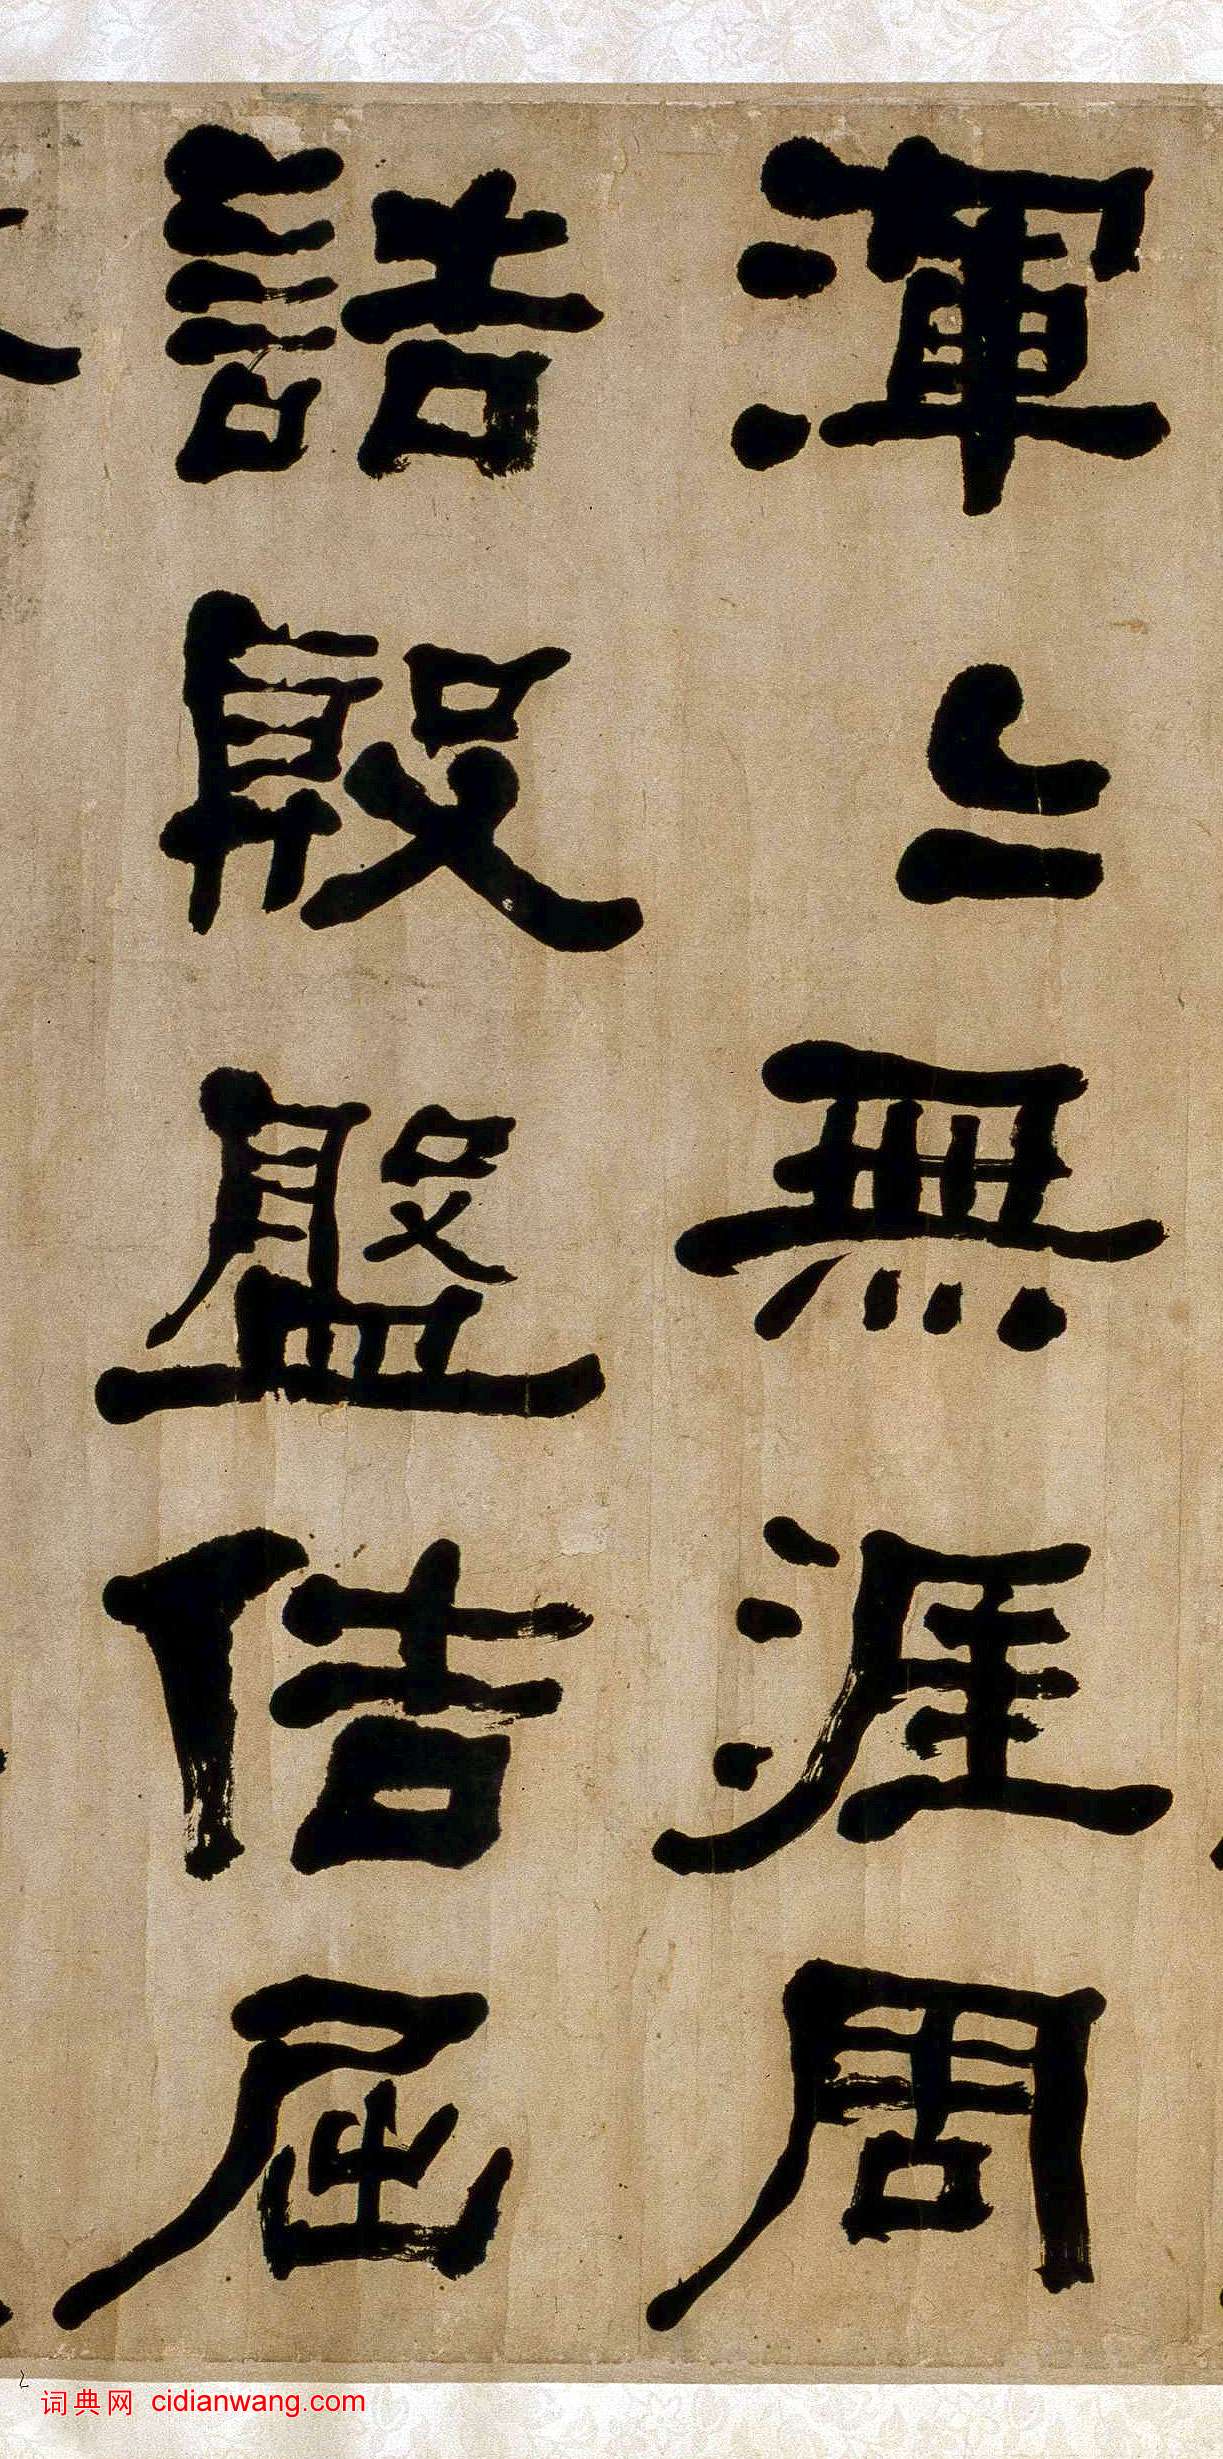 渾〻無涯周
誥殷盤佶屈
词典网 cidianwang.com